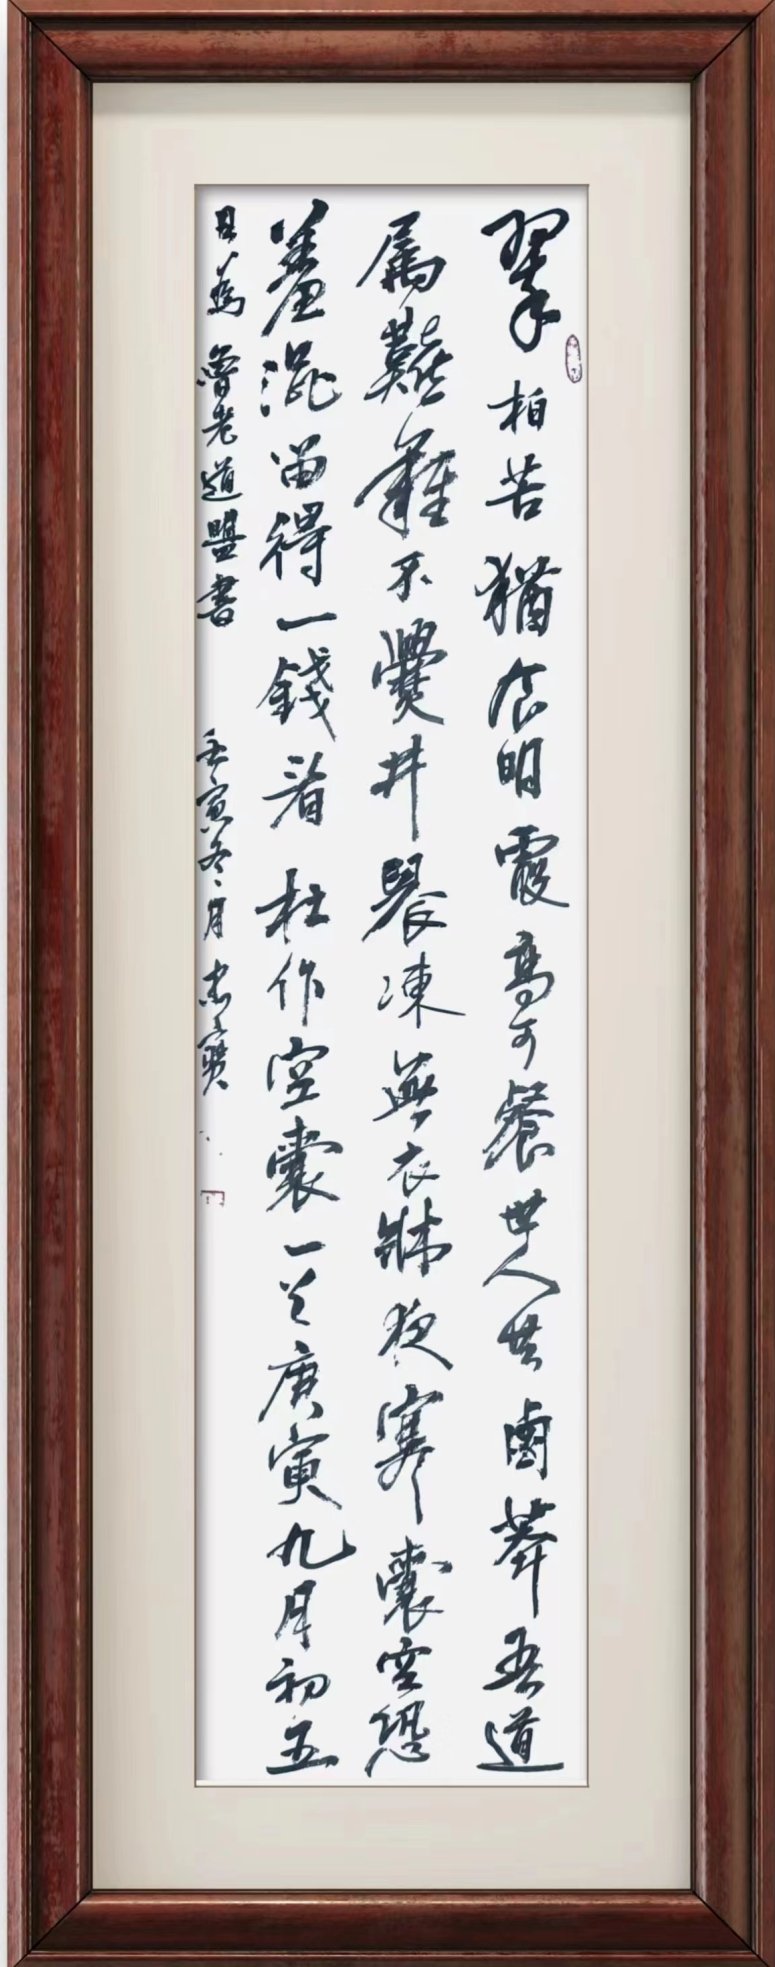 翠柏苦猶食明霞高可餐世人共鹵莽吾道
属艱難不爨井晨凍無衣牀夜寒囊空恐
羞澀留得一錢看 杜作空囊一首庚寅九月初五
日為魯老道盟書 壬寅冬月忠寶